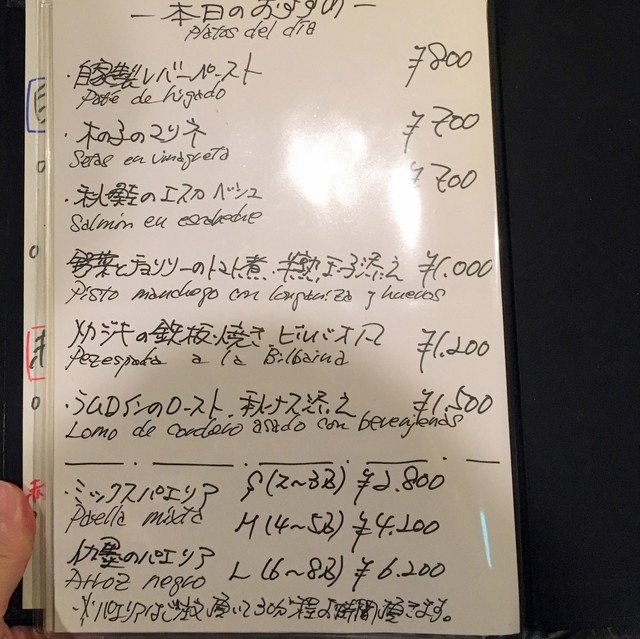 ー本日のおすすめー
Platos del día
・自家製レバーペースト ¥800
Paté de hígado
・木の子のマリネ ¥700
Setas en vinagreta
・秋鮭のエスカベシュ ¥700
Salmón en escabeche
野菜とチョリソーのトマト煮、半熟玉子添え ¥1.000
Pisto manchego con longaniza y huevos
メカジキの鉄板焼き ビルバオ風 ¥1.200
Pez espada a la Bilbaina
・ラムロインのロースト、秋ナス添え ¥1.500
Lomo de cordero asado con berenjenas
・ミックスパエリア S(2〜3名) ¥2.800
Paella mixta M(4〜5名) ¥4.200
イカ墨のパエリア L(6〜8名) ¥6.200
Arroz negro
※パエリアはご注文頂いて30分程お時間頂きます。